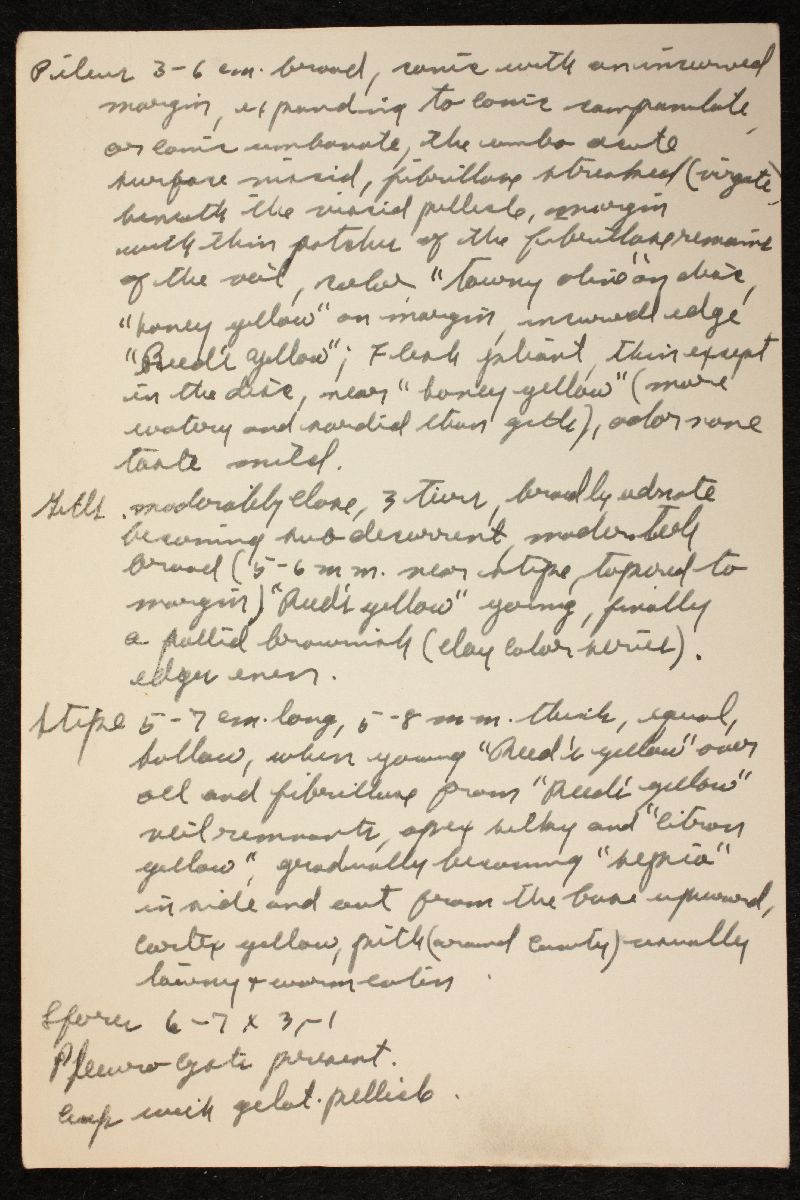 Pileus 3-6 cm. broad, conic with an incurved
margin, expanding to conic campanulate,
or conic umbonate, the umbo acute
surface viscid, fibrillose streaked (virgate)
beneath the viscid pellicle, margin
with thin patches of the fibrillose remains
of the veil, color "tawny olive" on disc,
"honey yellow" on margin, incurved edge
"Reed's yellow"; Flesh pliant, thin except
in the disc, near "honey yellow" (more
watery and sordid than gills), odor none
taste mild.
Gills moderately close, 3 tiers, broadly adnate
becoming sub decurrent, moderately
broad (5-6 mm. near stipe, tapered to
margin) "Reed's yellow" young, finally
a pallid brownish (clay color series).
edges even.
Stipe 5-7 cm. long, 5-8 mm. thick, equal,
hollow, when young "Reed's yellow" over
all and fibrillose from "Reed's yellow"
veil remnants, apex silky and "citron
yellow", gradually becoming "sepia"
inside and out from the base upward,
cortex yellow, pith (around cavity) usually
tawny + worm eaten
Spores 6-7 x 3,-1
Pleuro cysti present.
with gelat. pellicle.